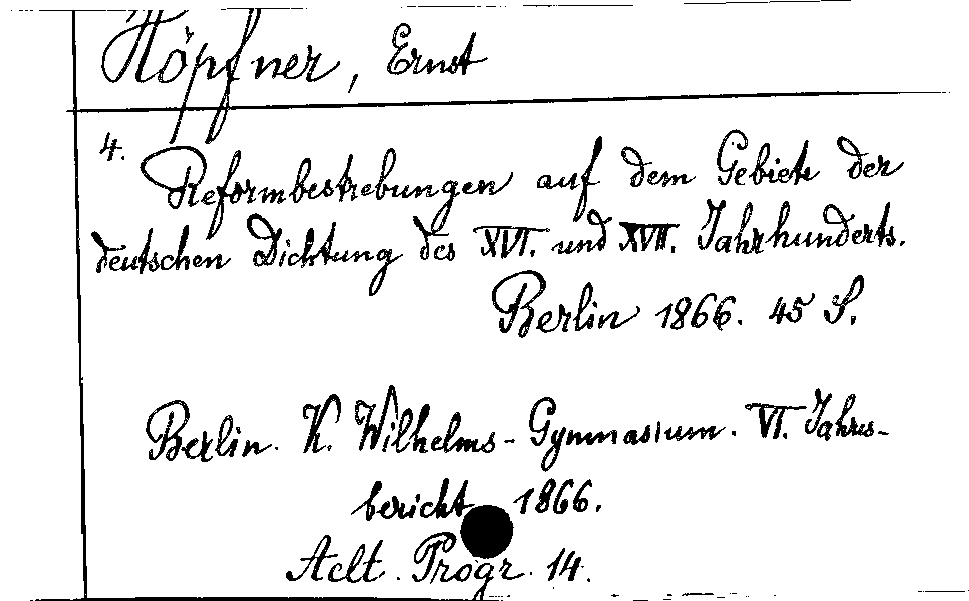 Höpfner, Ernst
4.
Reformbestrebungen auf dem Gebiete der
deutschen Dichtung des XVI. und XVII. Jahrhunderts.
Berlin 1866. 45 S.
Berlin. K. Wilhelms-Gymnasium. VI. Jahres-
bericht 1866.
Aelt. Progr. 14.